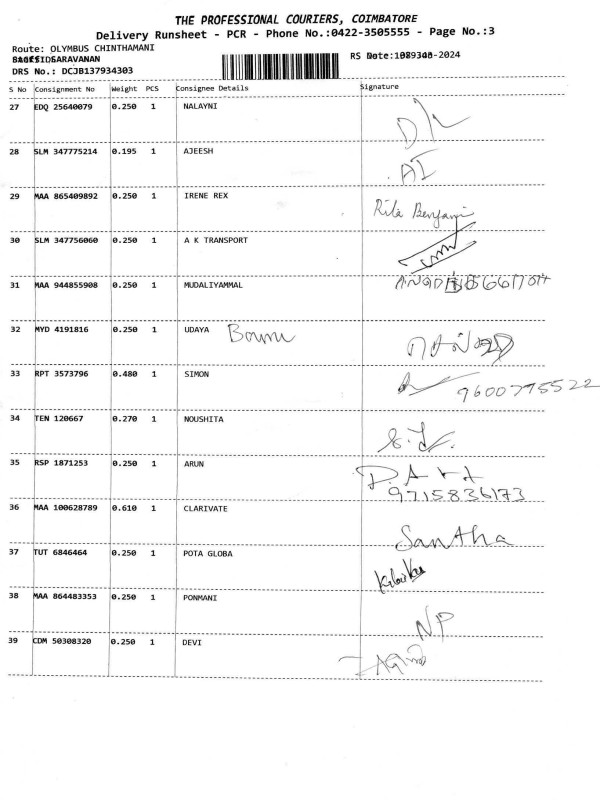 THE PROFESSIONAL COURIERS, COIMBATORE
Delivery Runsheet - PCR - Phone No.:0422-3505555 - Page No.:3
Route: OLYMBUS CHINTHAMANI
SARAVANAN
DRS No.: DCJB137934303
RS Date: -2024
S No Consignment No Weight PCS Consignee Details Signature
27 EDQ 25640079 0.250 1 NALAYNI
28 SLM 347775214 0.195 1 AJEESH
29 MAA 865409892 0.250 1 IRENE REX Rita
30 SLM 347756060 0.250 1 A K TRANSPORT
31 MAA 944855908 0.250 1 MUDALIYAMMAL
32 MYD 4191816 0.250 1 UDAYA
33 RPT 3573796 0.480 1 SIMON 9600775522
34 TEN 120667 0.270 1 NOUSHITA
35 RSP 1871253 0.250 1 ARUN
9715836173
36 MAA 100628789 0.610 1 CLARIVATE Santha
37 TUT 6846464 0.250 1 POTA GLOBA
38 MAA 864483353 0.250 1 PONMANI NP
39 CDM 50308320 0.250 1 DEVI